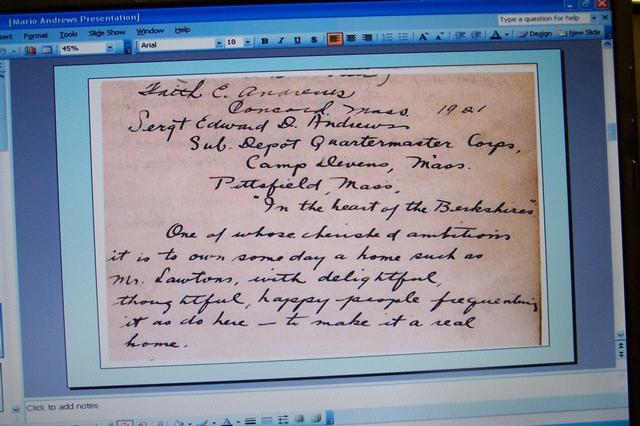 [Mario Andrews Presentation]
Type a question for help
Format Tools Slide Show Window Help
45% Arial 18 B I U S Design New Slide
Faith E. Andrews
Concord. Mass. 1921
Sergt Edward D. Andrews
Sub. Depot Quartermaster Corps,
Camp Devens, Mass.
Pittsfield, Mass,
"In the heart of the Berkshires"
One of whose cherished ambitions
it is to own some day a home such as
Mr. Lawtons, with delightful,
thoughtful, happy people frequenting
it as do here — to make it a real
home.
Click to add notes